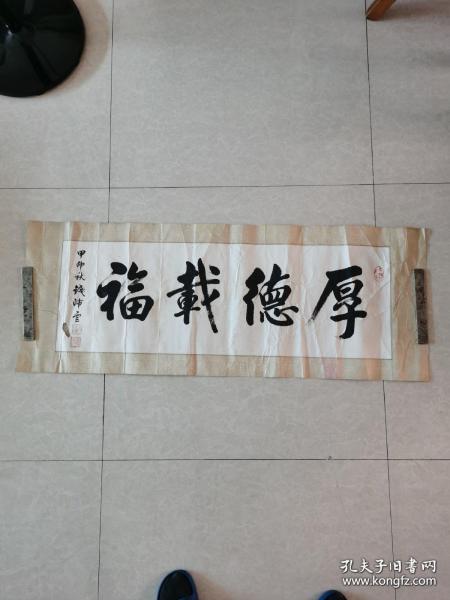 厚德載福
甲卯秋
孔夫子旧书网
www.kongfz.com